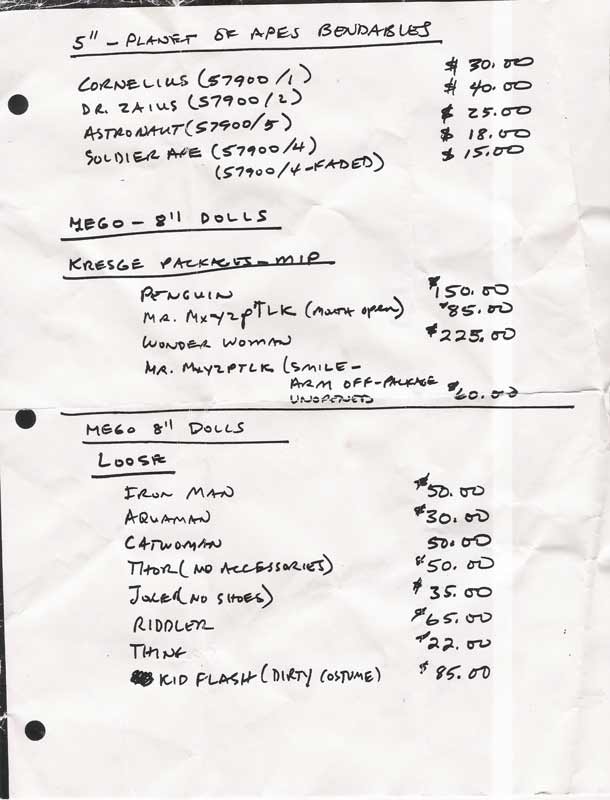 5" - PLANET OF APES BENDABLES
CORNELIUS (57900/1) $ 30.00
DR. ZAIUS (57900/2) $ 40.00
ASTRONAUT (57900/5) $ 25.00
SOLDIER APE (57900/4) $ 18.00
(57900/4-FADED) $ 15.00
MEGO - 8" DOLLS
KRESGE PACKAGES - MIP
PENGUIN $150.00
MR. MXYZPTLK (MOUTH OPEN) $85.00
WONDER WOMAN $225.00
MR. MXYZPTLK (SMILE -
ARM OFF - PACKAGE
UNOPENED $60.00
MEGO 8" DOLLS
LOOSE
IRON MAN $50.00
AQUAMAN $30.00
CATWOMAN 50.00
THOR (NO ACCESSORIES) $50.00
JOKER (NO SHOES) $ 35.00
RIDDLER $65.00
THING $22.00
KID FLASH (DIRTY COSTUME) $ 85.00